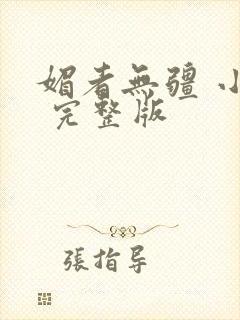 媚者無疆 小
完整版
張指导